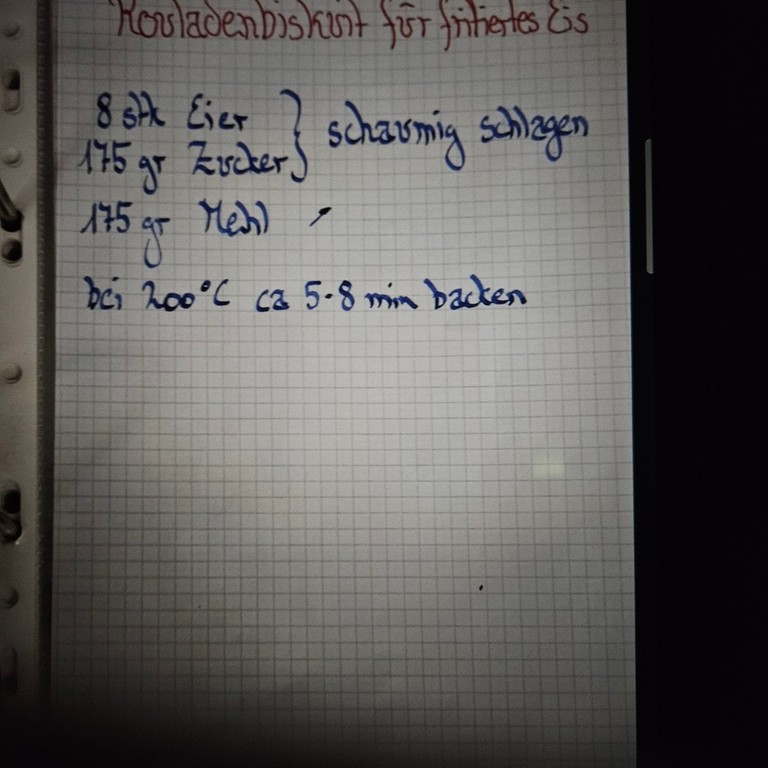 Rouladenbiskuit für fritiertes Eis
8 stk Eier } schaumig schlagen
175 gr Zucker
175 gr Mehl
bei 200°C ca 5-8 min backen